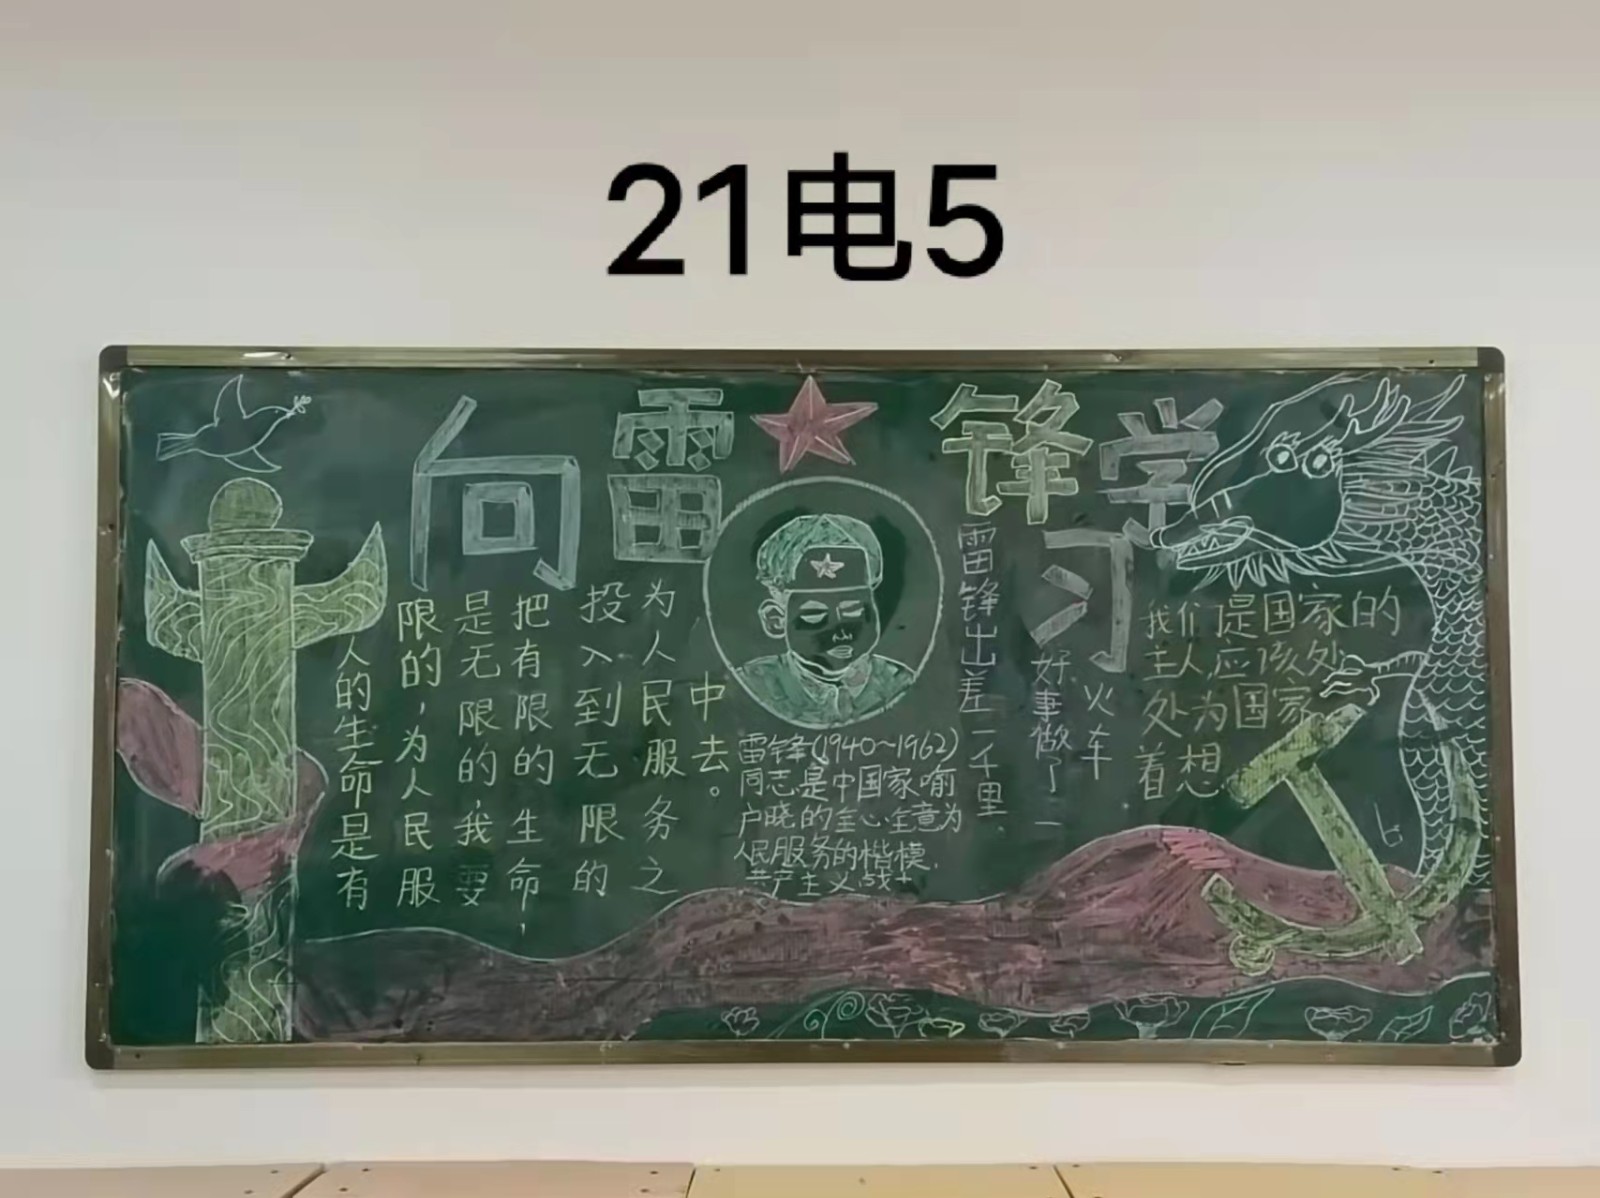 21电5
向雷锋学习
人的生命是有
限的，为人民服
是无限的，我要
把有限的生命，
投入到无限的
为人民服务之
中去。
雷锋(1940~1962)
同志是中国家喻
户晓的全心全意为
人民服务的楷模，
共产主义战士
雷锋出差一千里，
好事做了一
火车
我们是国家的
主人,应该处
处为国家
着想